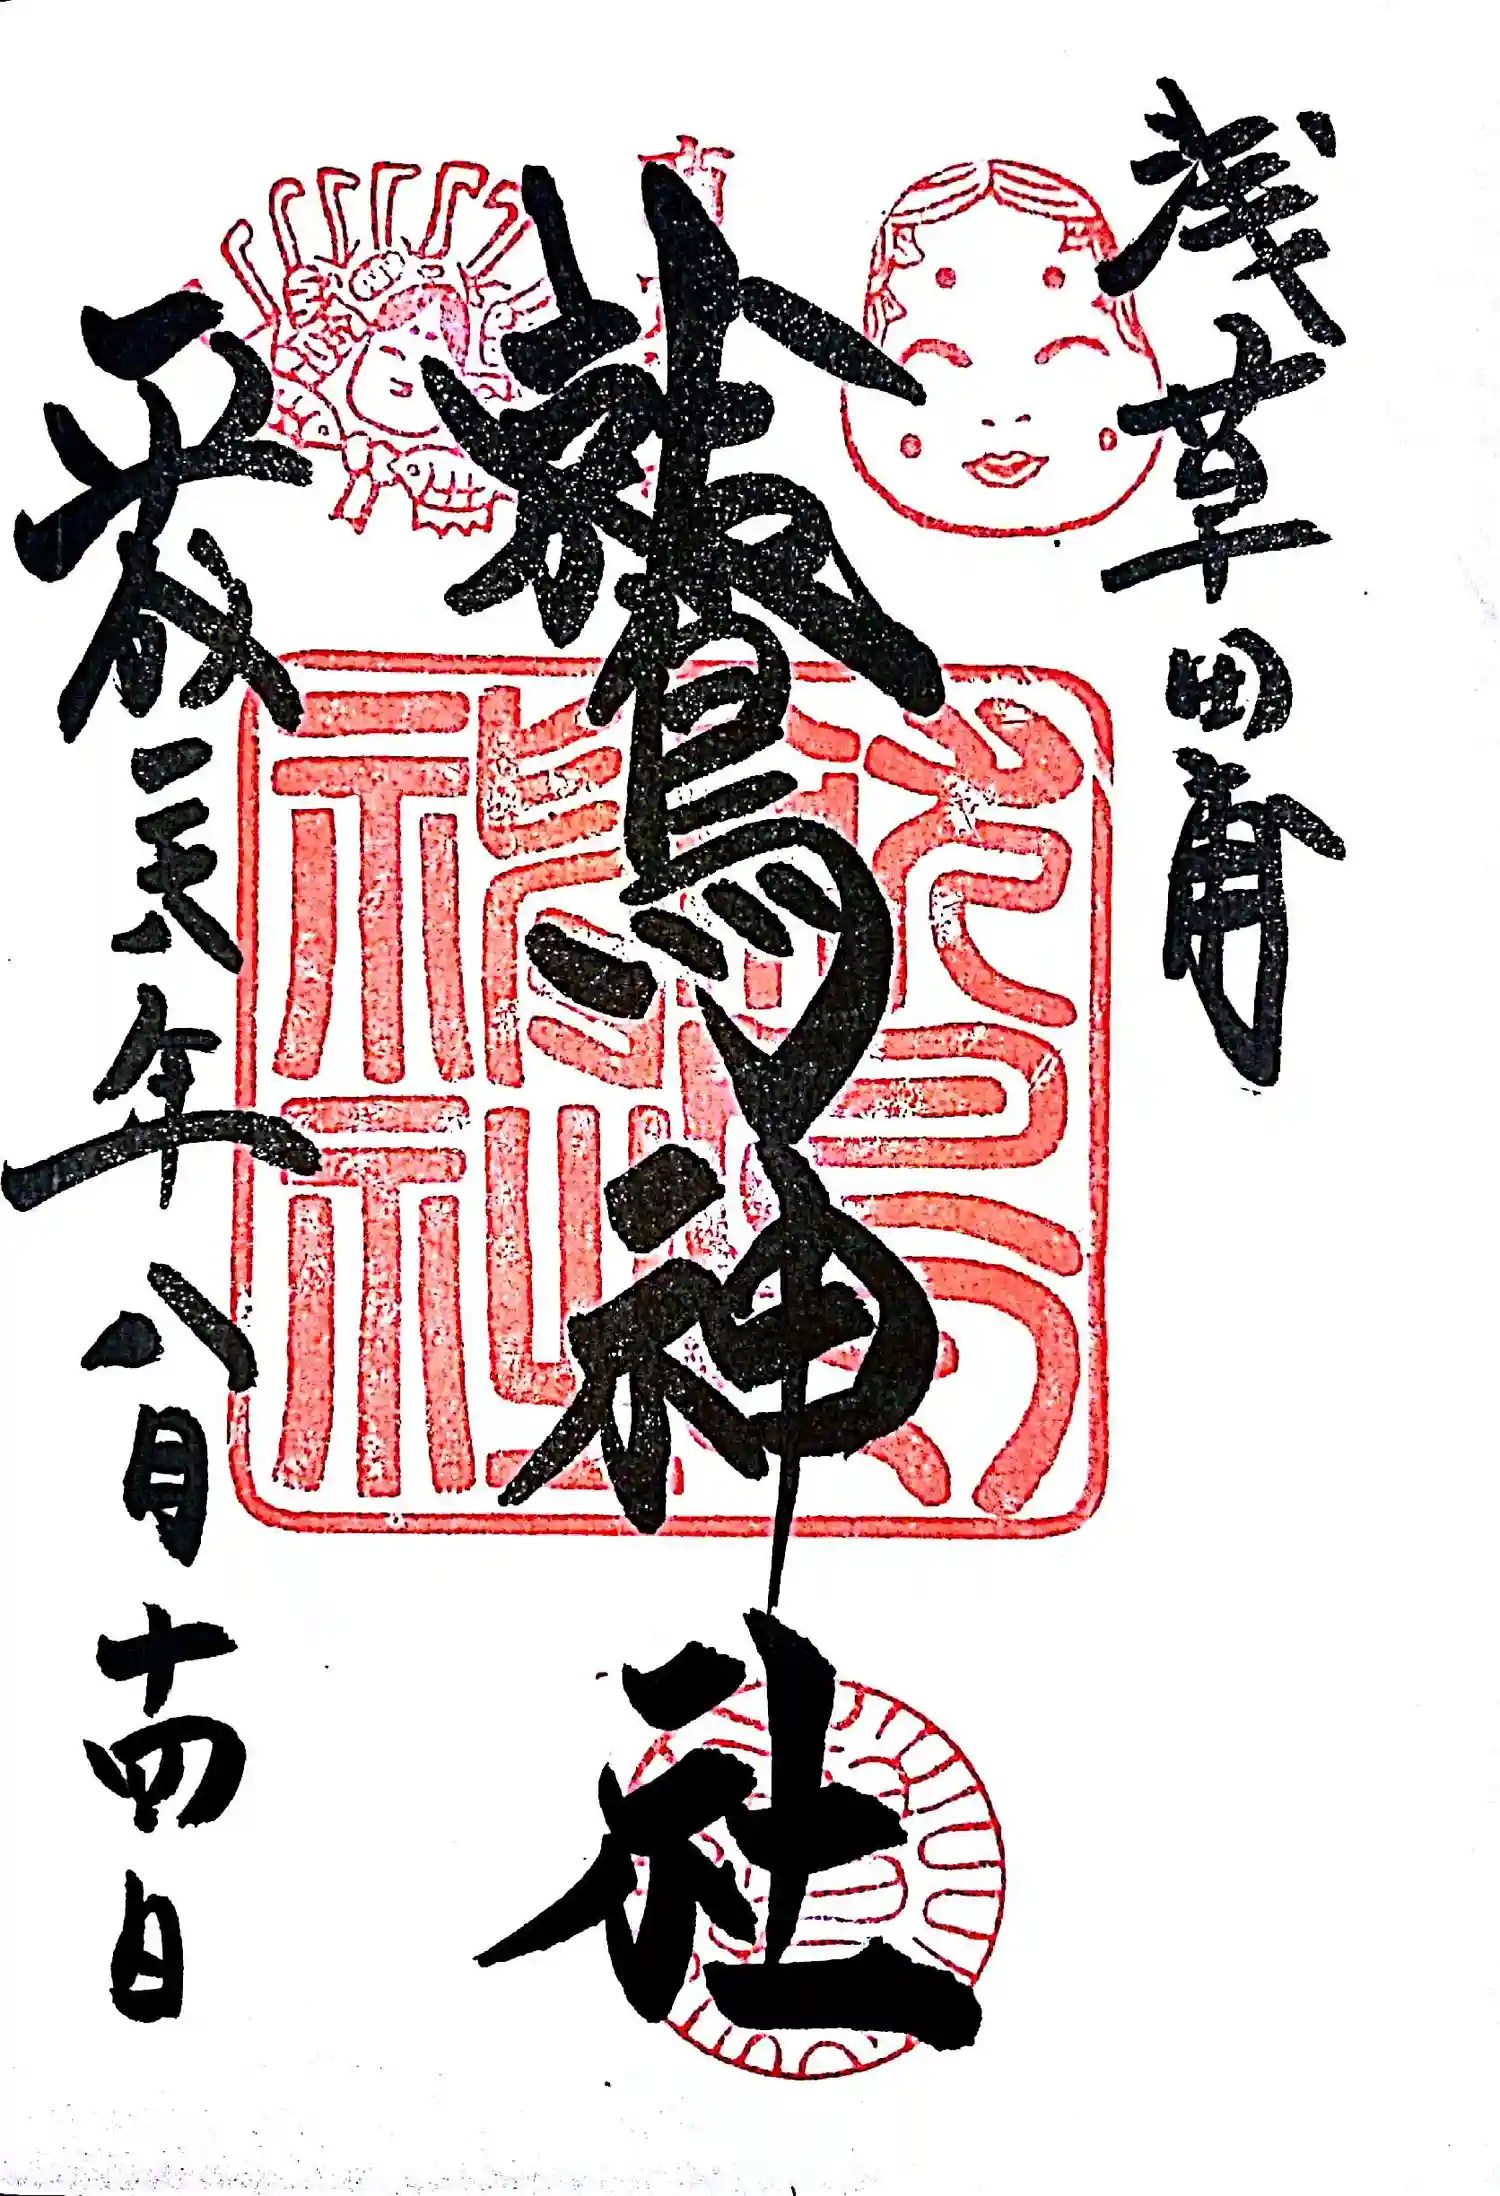 浅草田甫
鷲神社
平成二十八年八月十四日